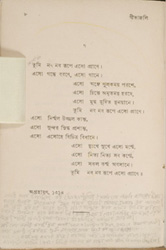 গীতাঞ্জলি
৭
তুমি নব নব রূপে এসো প্রাণে।
এসো গন্ধে বরনে, এসো গানে।
এসো অঙ্গে পুলকময় পরশে,
এসো চিত্তে অমৃতময় হরষে,
এসো মুগ্ধ মুদিত দুনয়ানে।
তুমি নব নব রূপে এসো প্রাণে।
এসো নির্মল উজ্জ্বল কান্ত,
এসো সুন্দর স্নিগ্ধ প্রশান্ত,
এসো এসো হে বিচিত্র বিধানে।
এসো দুঃখে সুখে এসো মর্মে,
এসো নিত্য নিত্য সব কর্মে;
এসো সকল কর্ম অবসানে।
তুমি নব নব রূপে এসো প্রাণে।
অগ্রহায়ণ, ১৩১৪